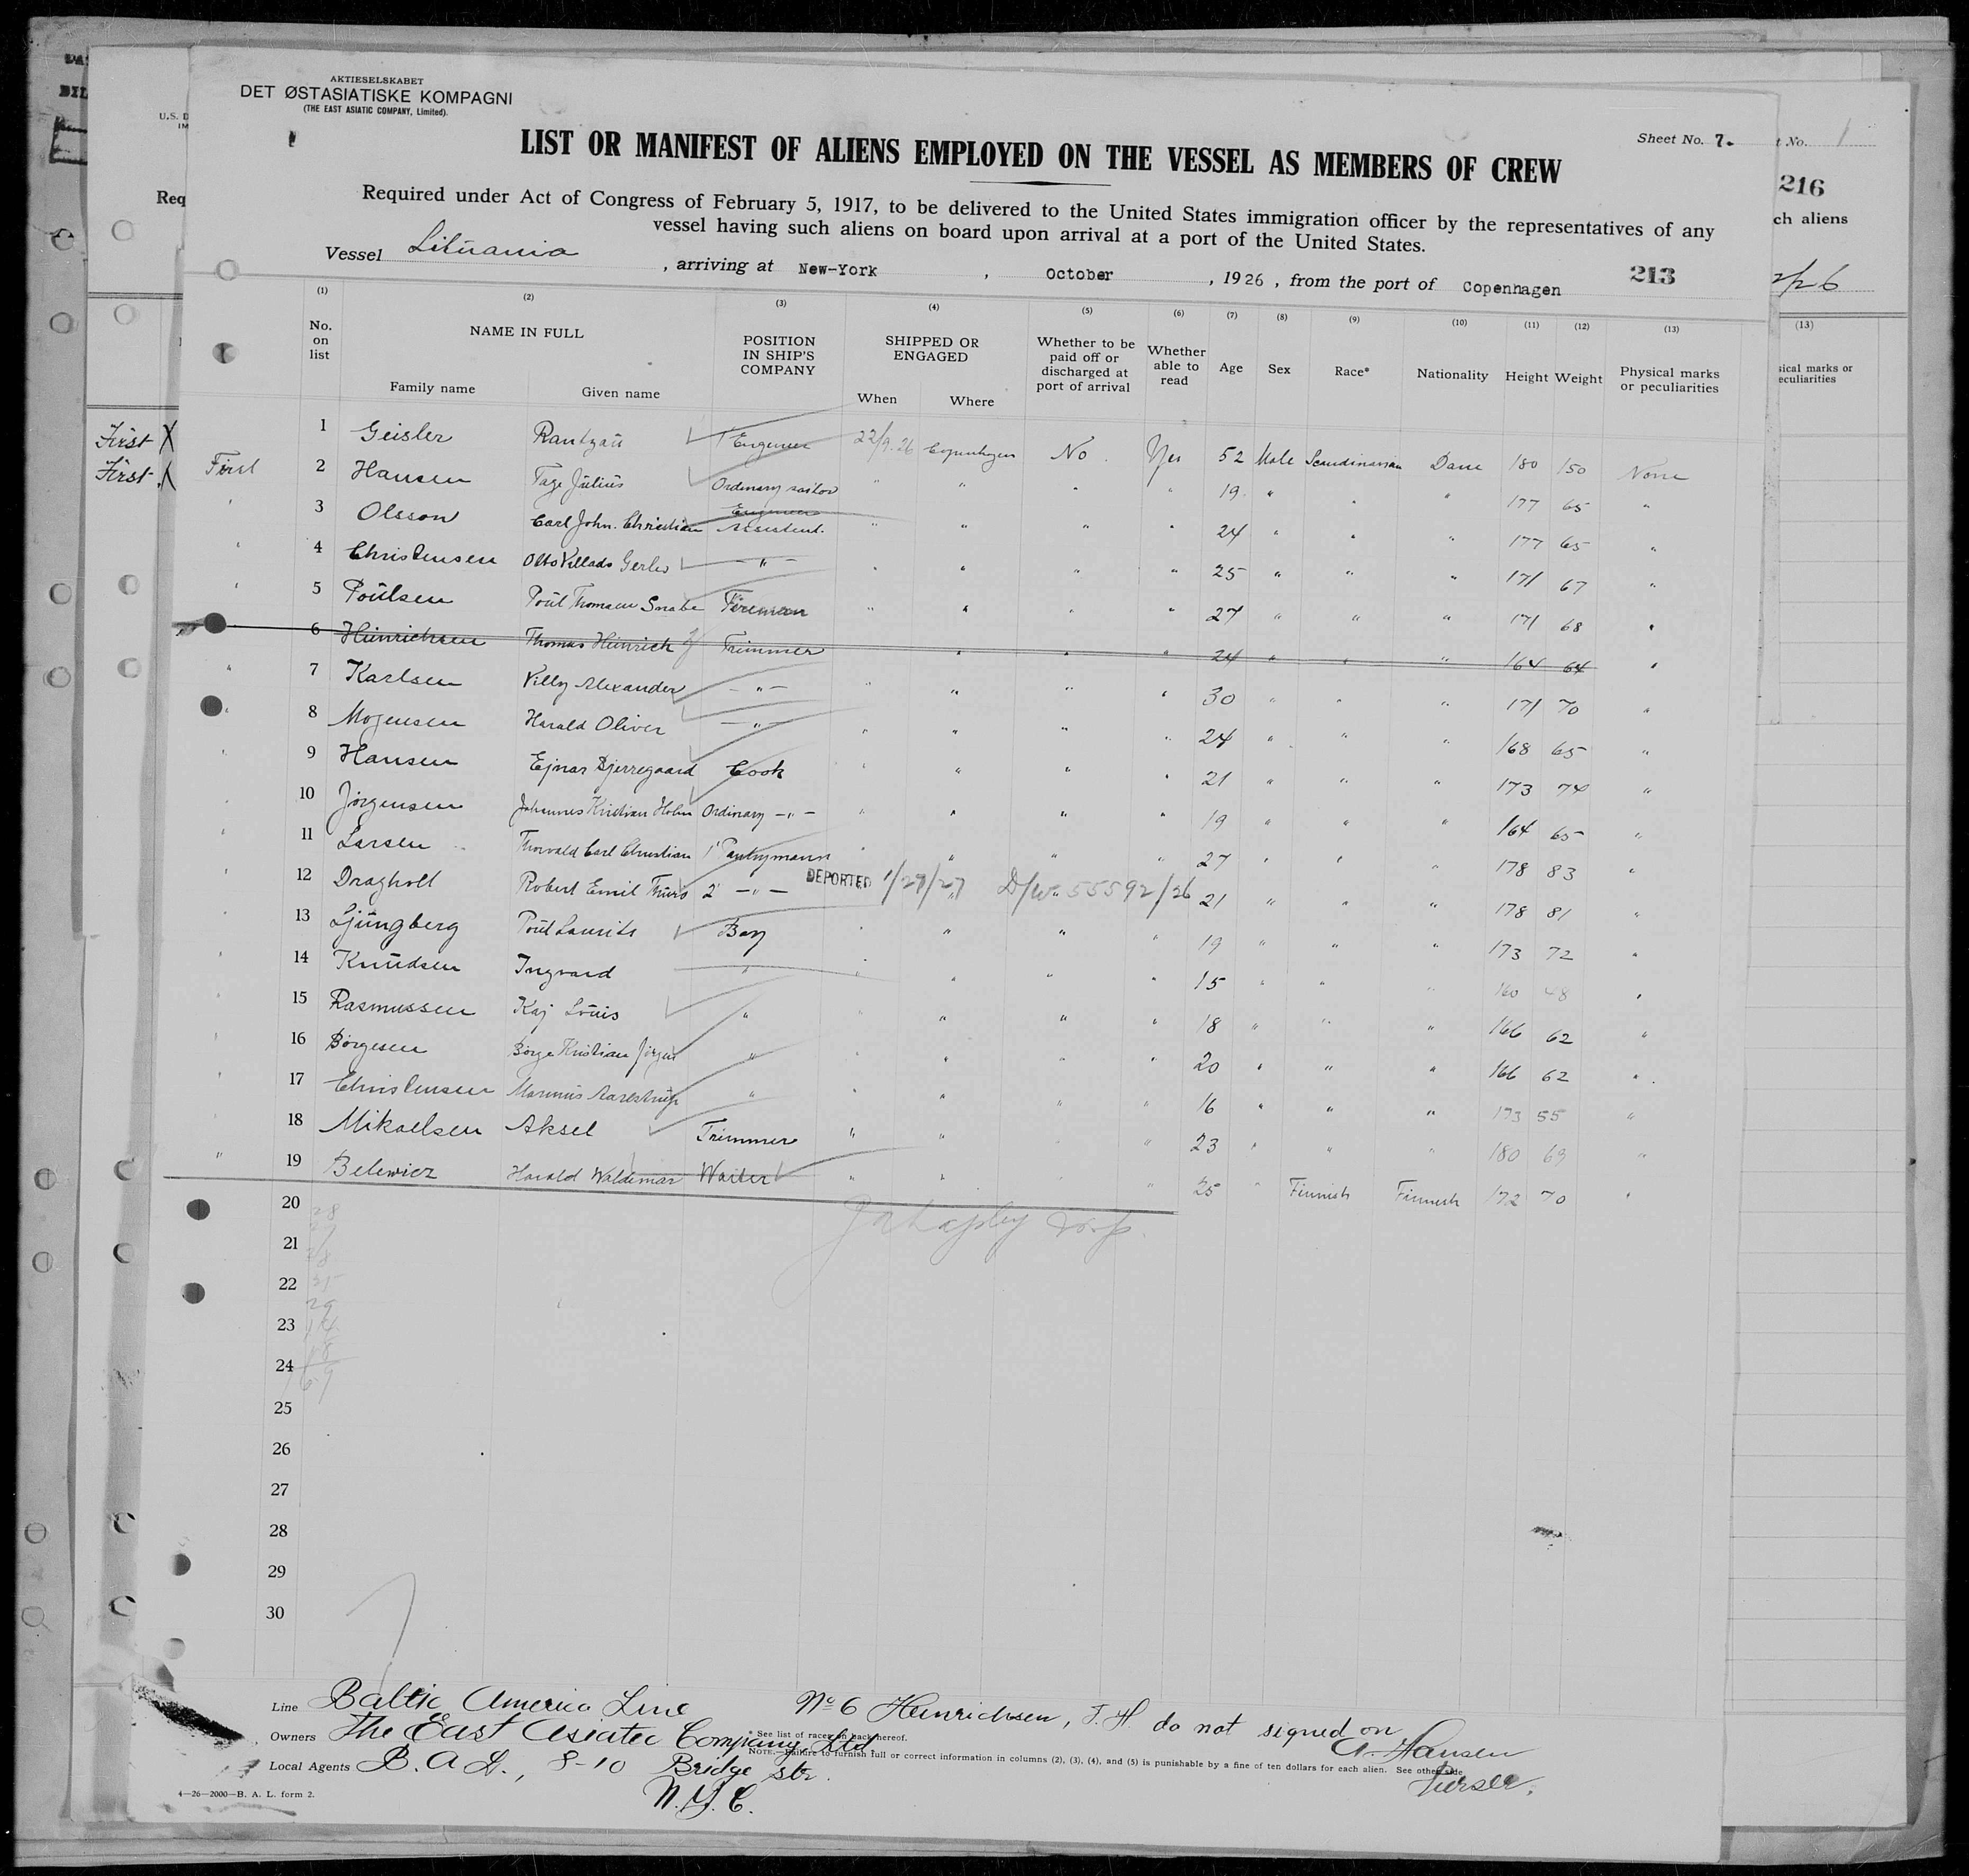 AKTIESELSKABET
DET ØSTASIATISKE KOMPAGNI
(THE EAST ASIATIC COMPANY, Limited).
Sheet No. 7.
t No. 1
LIST OR MANIFEST OF ALIENS EMPLOYED ON THE VESSEL AS MEMBERS OF CREW
216
Required under Act of Congress of February 5, 1917, to be delivered to the United States immigration officer by the representatives of any
vessel having such aliens on board upon arrival at a port of the United States.
Req
ch aliens
Vessel Lituania, arriving at New-York, October, 1926, from the port of Copenhagen
213
2/26
(1) (2) (3) (4) (5) (6) (7) (8) (9) (10) (11) (12) (13)
(13)
No. on list NAME IN FULL POSITION IN SHIP'S COMPANY SHIPPED OR ENGAGED Whether to be paid off or discharged at port of arrival Whether able to read Age Sex Race* Nationality Height Weight Physical marks or peculiarities
sical marks or
eculiarities
Family name Given name When Where
First X
First X
First
1 Geisler Rantzau 1' Engineer 22/9.26 Copenhagen No. Yes 52 Male Scandinavian Dane 180 150 None
2 Hansen Tage Julius Ordinary sailor " " " " 19 " " " 177 65 "
3 Olsson Carl John. Christian Engineer Assistent. " " " " 24 " " " 177 65 "
4 Christensen Otto Villads — " — " " " " 25 " " " 171 67 "
5 Poulsen Poul Thomsen Fireman " " " " 27 " " " 171 68 "
6 Hinrichsen Thomas Hinrich Trimmer " " " 24 " " " 164 64 "
7 Karlsen Villy Alexander — " — " " " " 30 " " " 171 70 "
8 Mogensen Harald Oliver — " — " " " " 24 " " " 168 65 "
9 Hansen Ejnar Bjerregaard Cook " " " " 21 " " " 173 74 "
10 Jörgensen Johannes Kristian Holm Ordinary — " — " " " " 19 " " " 164 65 "
11 Larsen Thorvald Carl Christian 1' Pantrymann " " " " 27 " " " 178 83 "
12 Dragholt Robert Emil Thurs 2' — " — DEPORTED 1/27/27 D/W. 55592/26 21 " " " 178 81 "
13 Ljungberg Poul Laurits Boy " " " " 19 " " " 173 72 "
14 Knudsen Ingvard " " " " " 15 " " " 160 48 "
15 Rasmussen Kaj Louis " " " " " 18 " " " 166 62 "
16 Börgesen Börge Kristian Jörgen " " " " " 20 " " " 166 62 "
17 Christensen Marinus Aarestrup " " " " " 16 " " " 173 55 "
18 Mikaelsen Aksel Trimmer " " " 23 " " " 180 69 "
19 Belewicz Harald Waldemar Waiter " " " 25 " Finnish Finnish 172 70 "
20
21
22
23
24
25
26
27
28
29
30
Line Baltic America Line
No 6 Heinrichsen, T.H. do not signed on
Owners The East Asiatic Company Ltd
* See list of races on back hereof.
A. Hansen
NOTE.—Failure to furnish full or correct information in columns (2), (3), (4), and (5) is punishable by a fine of ten dollars for each alien. See other side.
Local Agents B. A L., 8-10 Bridge str.
Purser.
N.Y.C.
4—26—2000—B. A. L. form 2.